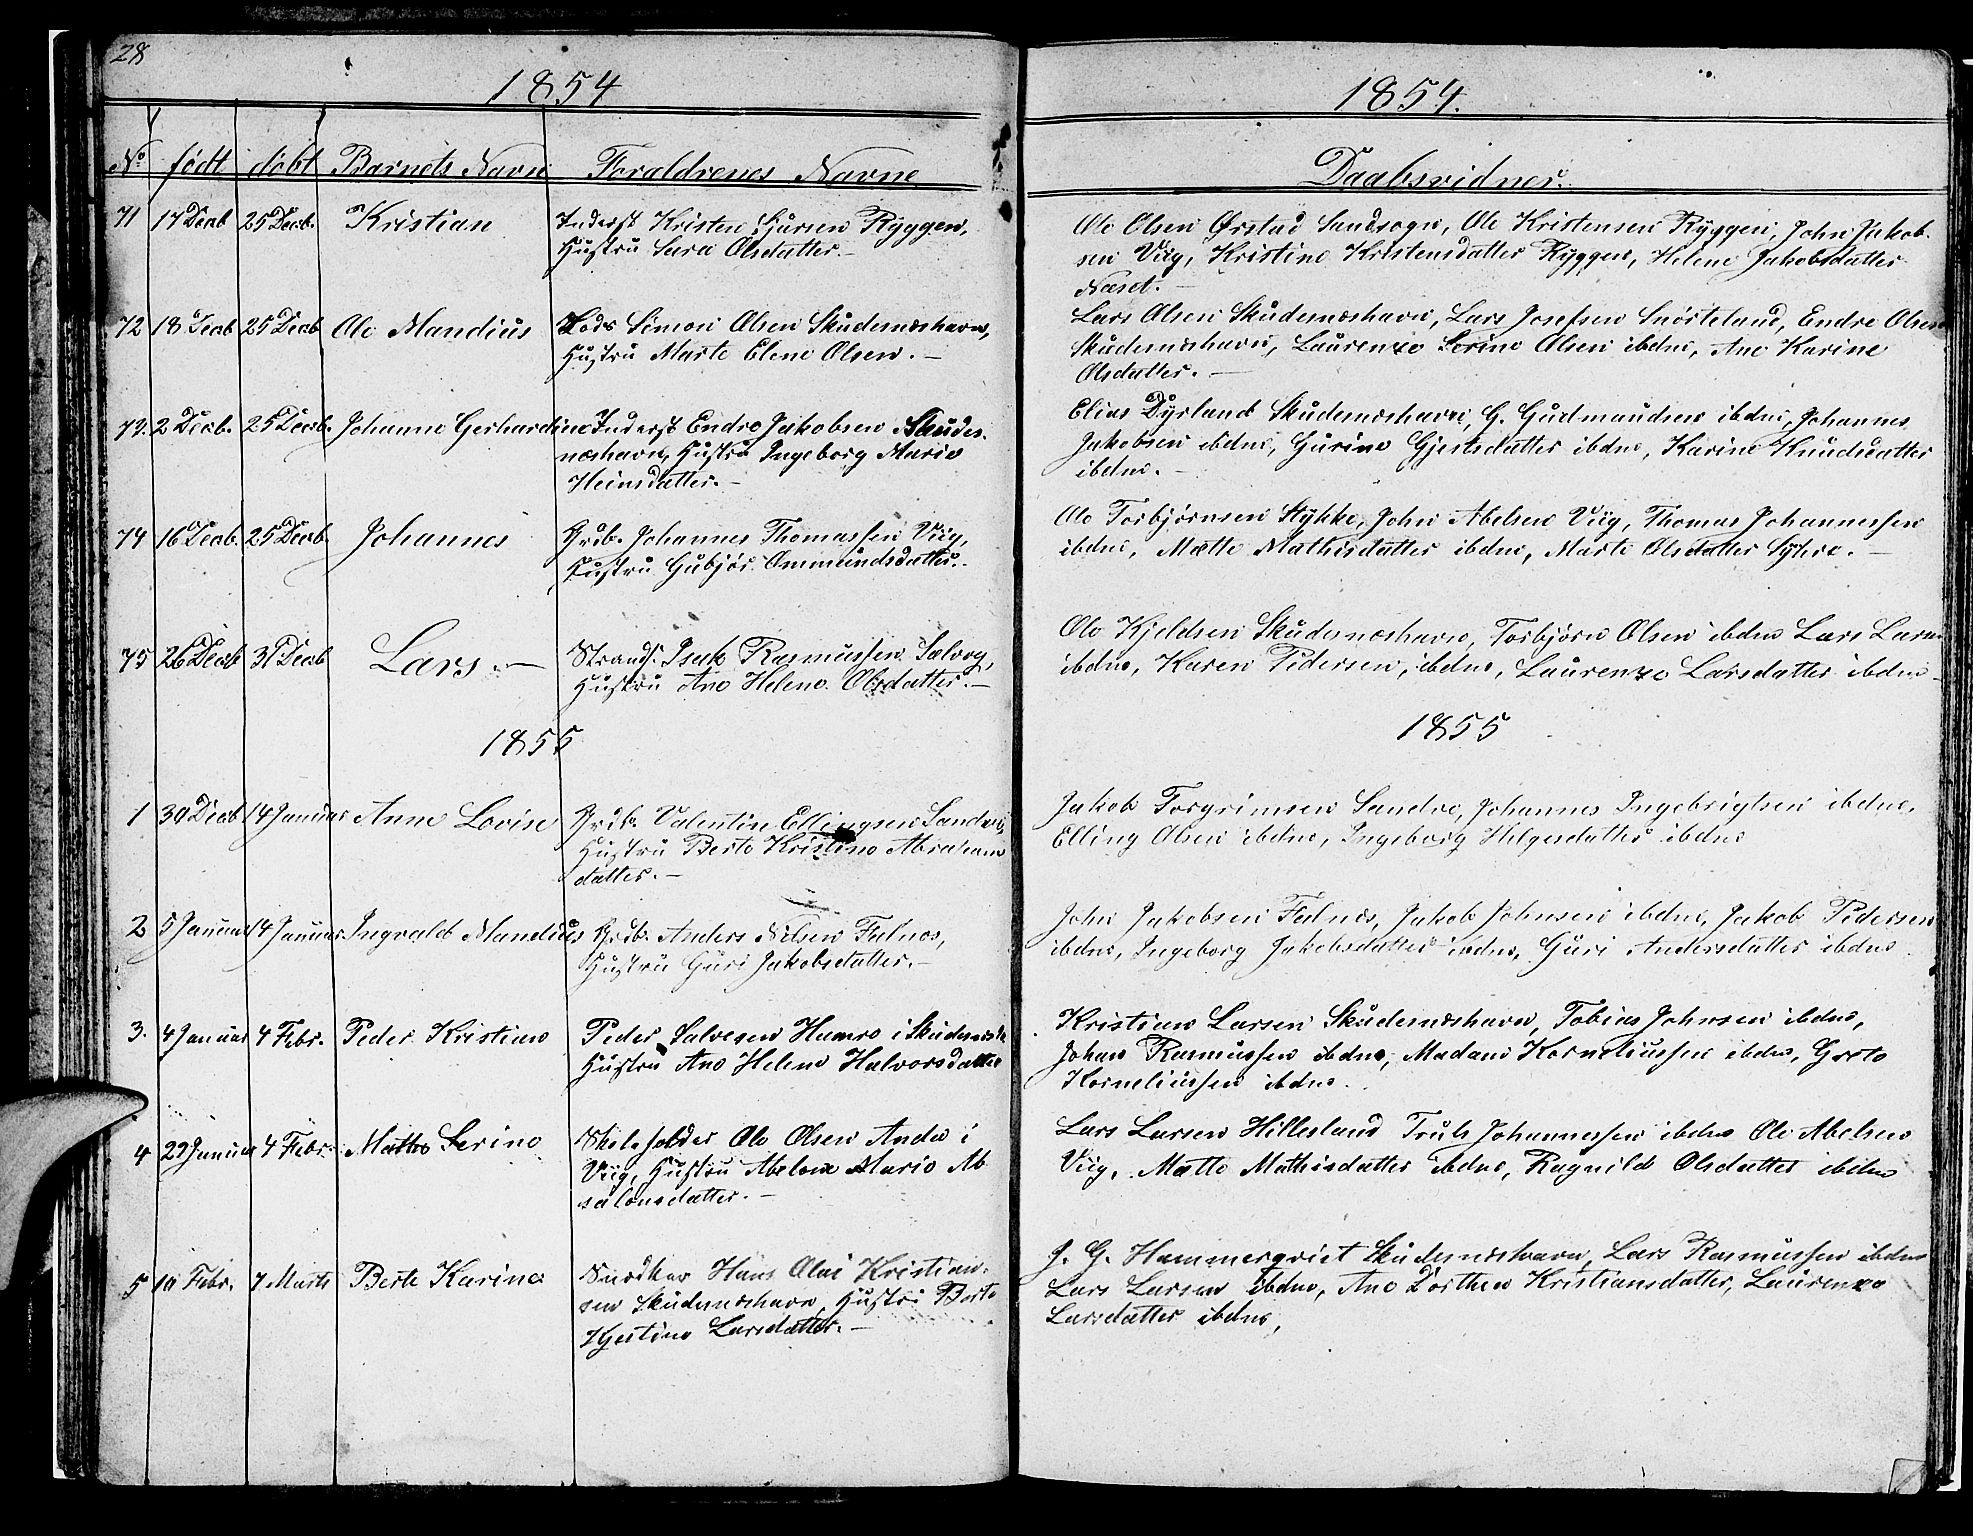 28
1854
No født døbt Barnets Navn Forældrenes Navne
71 17 Decb 25 Decb. Kristian Inderst Kristen Sjursen Ryggen,
Hustru Sara Olsdatter.-
72 18 Decb 25 Decb Ole Mandius Lods Simon Olsen Skudesnæshavn,
Hustru Marte Elene Olsen.-
73. 2 Decb. 25 Decb. Johanne Gerhardine Inderst Endre Jakobsen Skudes-
næshavn, Hustru Ingeborg Marie
Heinsdatter.-
74 16 Decb. 25 Decb. Johannes Grdb. Johannes Thomassen Viig,
Hustru Gubjør Ommundsdatter.
75 26 Decb 31 Decb Lars.- Strands. Isak Rasmussen Salvog,
Hustru Ane Helene Olsdatter.-
1855
1 30 Decb 14 Januar Anne Lovise Grdb. Valentin Ellingsen Sandve,
Hustru Berte Kristine Abrahams
datter.-
2 5 Januar 14 Januar Ingvald Mandius Grdb. Anders Nilsen Falnes,
Hustru Guri Jakobsdatter.-
3. 4 Januar 4 Febr. Peder Kristian Peder Salvesen Hamre i Skudesnæsh
Hustru Ane Helene Halvorsdatter
4 29 Januar 4 Febr. Mathe Serine Skoleholder Ole Olsen Anda i
Viig, Hustru Abelone Marie Ab
salonsdatter.-
5 10 Febr. 7 Marts Berte Karine Snedker Hans Olai Kristian-
sen Skudesnæshavn, Hustru Berte
Kjestine Larsdatter.-
1854.
Daabsvidner.
Ole Olsen Ørstad Sandsogn, Ole Kristensen Ryggen, John Jakob-
sen Viig, Kristine Kristensdatter Ryggen, Helene Jakobsdatter
Næset.-
Lars Olsen Skudesnæshavn, Lars Josefsen Snørteland, Endre Olsen
Skudesnæshavn, Laurenze Serine Olsen ibdne, Ane Karine
Olsdatter.-
Elias Dyrland Skudesnæshavn, G. Gudmundsen ibdne, Johannes
Jakobsen ibdne, Gurine Gjertsdatter ibdne, Karine Knudsdatter
ibdne.-
Ole Torbjørnsen Stykke, John Abelsen Viig, Thomas Johannessen
ibdne, Mette Mathisdatter ibdne, Marte Olsdatter Syhre.-
Ole Kjeldsen Skudesnæshavn, Torbjørn Olsen ibdne Lars Larsen
ibdne, Karen Pedersen, ibdne, Laurenze Larsdatter ibdne-
1855
Jakob Torgrimsen Sandve, Johannes Ingebrigtsen ibdne,
Elling Olsen ibdne, Ingeborg Helgesdatter ibdne
John Jakobsen Falnes, Jakob Johnsen ibdne, Jakob Pedersen
ibdne, Ingeborg Jakobsdatter ibdne, Guri Andersdatter ibdne
Kristian Larsen Skudesnæshavn, Tobias Johnsen ibdne,
Johan Rasmussen ibdne, Madam Korneliussen ibdne, Grete
Korneliussen ibdne.
Lars Larsen Hillesland Truls Johannessen ibdne Ole Abelsen
Viig, Mette Mathisdatter ibdne, Ragnild Olsdatter ibdne
J. G. Hammerqvist Skudesnæshavn, Lars Rasmussen ibdne
Lars Larsen ibdne, Ane Dorthea Kristiansdatter, Laurenze
Larsdatter ibdne,